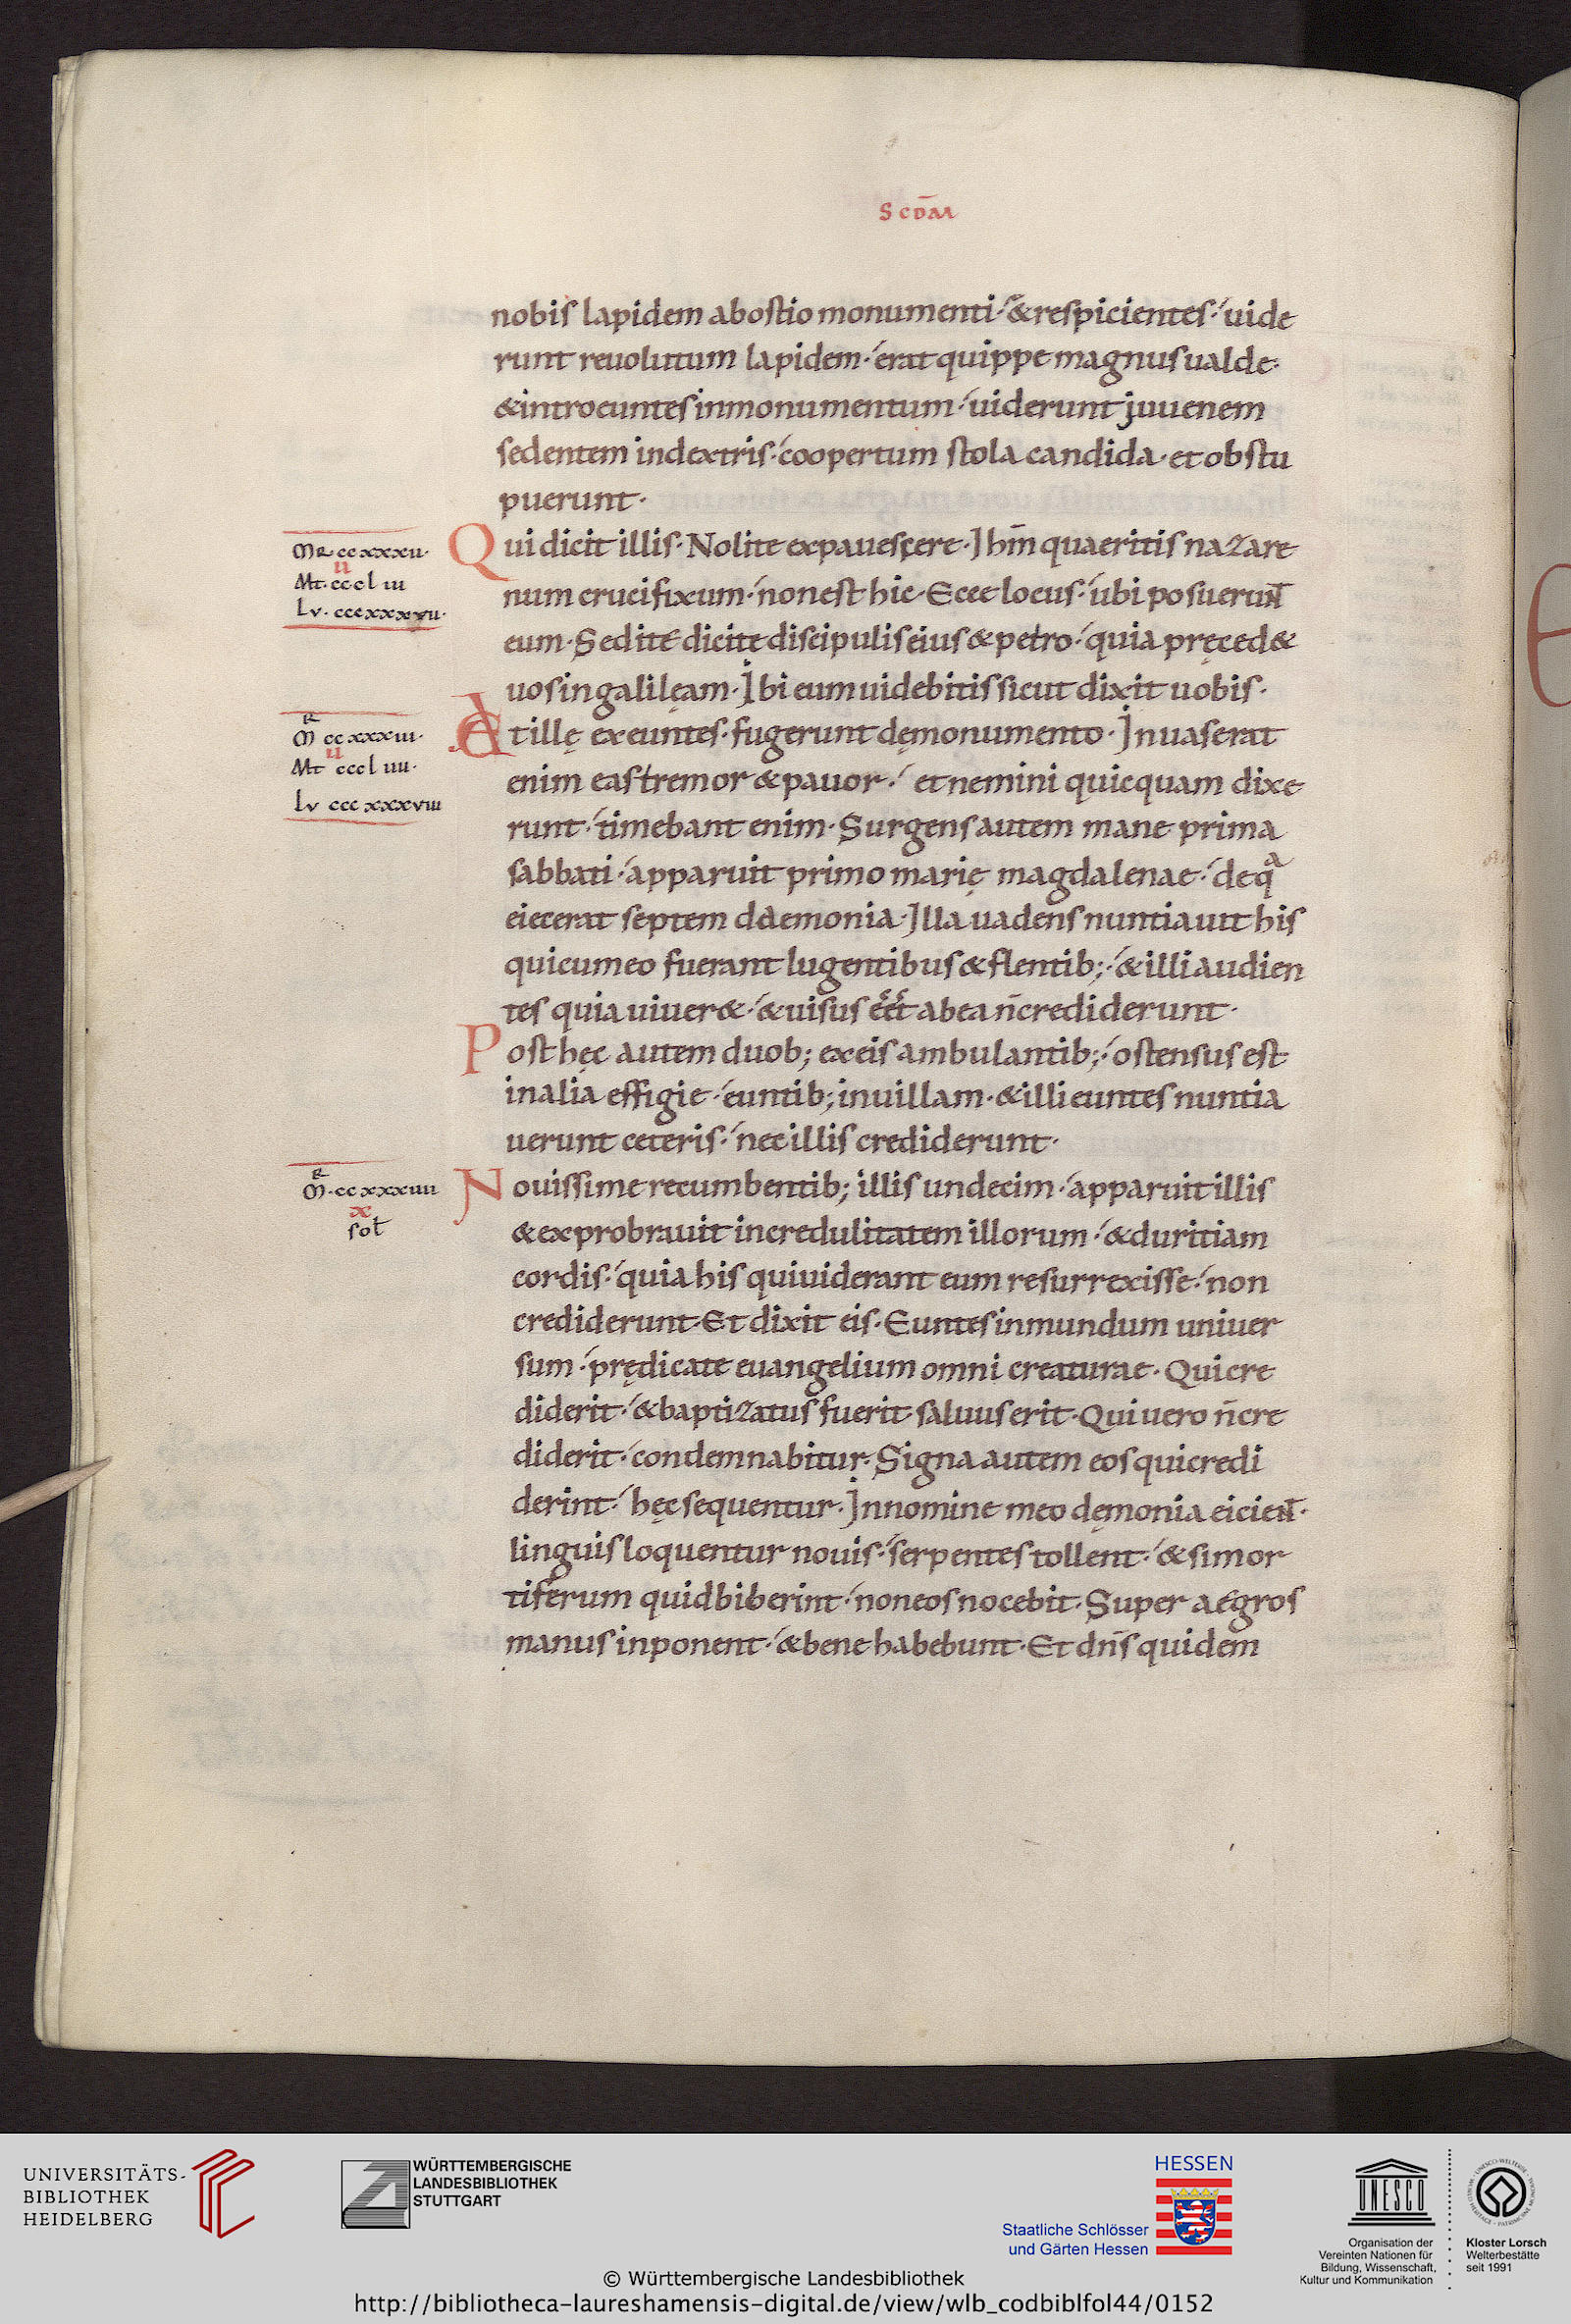 SCDM̅
nobis lapidem abostio monumenti· &respicientes· uide
runt reuolutum lapidem· erat quippe magnus ualde·
&introeuntes inmonumentum· uiderunt juuenem
sedentem indextris· coopertum stola candida· et obstu
puerunt·
MR ccxxxii·
ii
Mt· cccliii
Lv· cccxxxvii·
Qui dicit illis· Nolite expauescere· Ihm̅ quaeritis nazare
num crucifixum· non est hic· Ecce locus· ubi posuerunt̅
eum· Sed ite dicite discipulis eius & petro· quia pręced&
uos in galilęam· Ibi eum uidebitis sicut dixit uobis·
M R ccxxxiii·
ii
Mt cccliiii·
Lv cccxxxviii
At illę exeuntes· fugerunt dęmonumento· Inuaserat
enim eas tremor & pauor· et nemini quicquam dixe
runt· timebant enim· Surgens autem mane prima
sabbati· apparuit primo marię magdalenae· de qa
eiecerat septem daemonia· Illa uadens nuntiauit his
qui cum eo fuerant lugentibus & flentib;· & illi audien
tes quia uiuer&· & uisus eēt ab ea n̅ crediderunt·
Post hęc autem duob; ex eis ambulantib;· ostensus est
in alia effigie· euntib; in uillam· & illi euntes nuntia
uerunt ceteris· nec illis crediderunt·
M R ·ccxxxiiii
x
sol̅
Nouissime recumbentib; illis undecim· apparuit illis
& exprobrauit incredulitatem illorum· & duritiam
cordis· quia his qui uiderant eum resurrexisse· non
crediderunt· Et dixit eis· Euntes in mundum uniuer
sum· prędicate euangelium omni creaturae· Qui cre
diderit· & baptizatus fuerit saluus erit· Qui uero n̅ cre
diderit· condemnabitur· Signa autem eos qui credi
derint· hęc sequentur· In nomine meo dęmonia eicien̅t·
linguis loquentur nouis· serpentes tollent· & si mor
tiferum quid biberint· non eos nocebit· Super aegros
manus inponent· & bene habebunt· Et dn̅s quidem
UNIVERSITÄTS-
BIBLIOTHEK
HEIDELBERG
WÜRTTEMBERGISCHE
LANDESBIBLIOTHEK
STUTTGART
HESSEN
Staatliche Schlösser
und Gärten Hessen
UNESCO
Organisation der
Vereinten Nationen für
Bildung, Wissenschaft,
Kultur und Kommunikation
Kloster Lorsch
Welterbestätte
seit 1991
© Württembergische Landesbibliothek
http://bibliotheca-laureshamensis-digital.de/view/wlb_codbiblfol44/0152